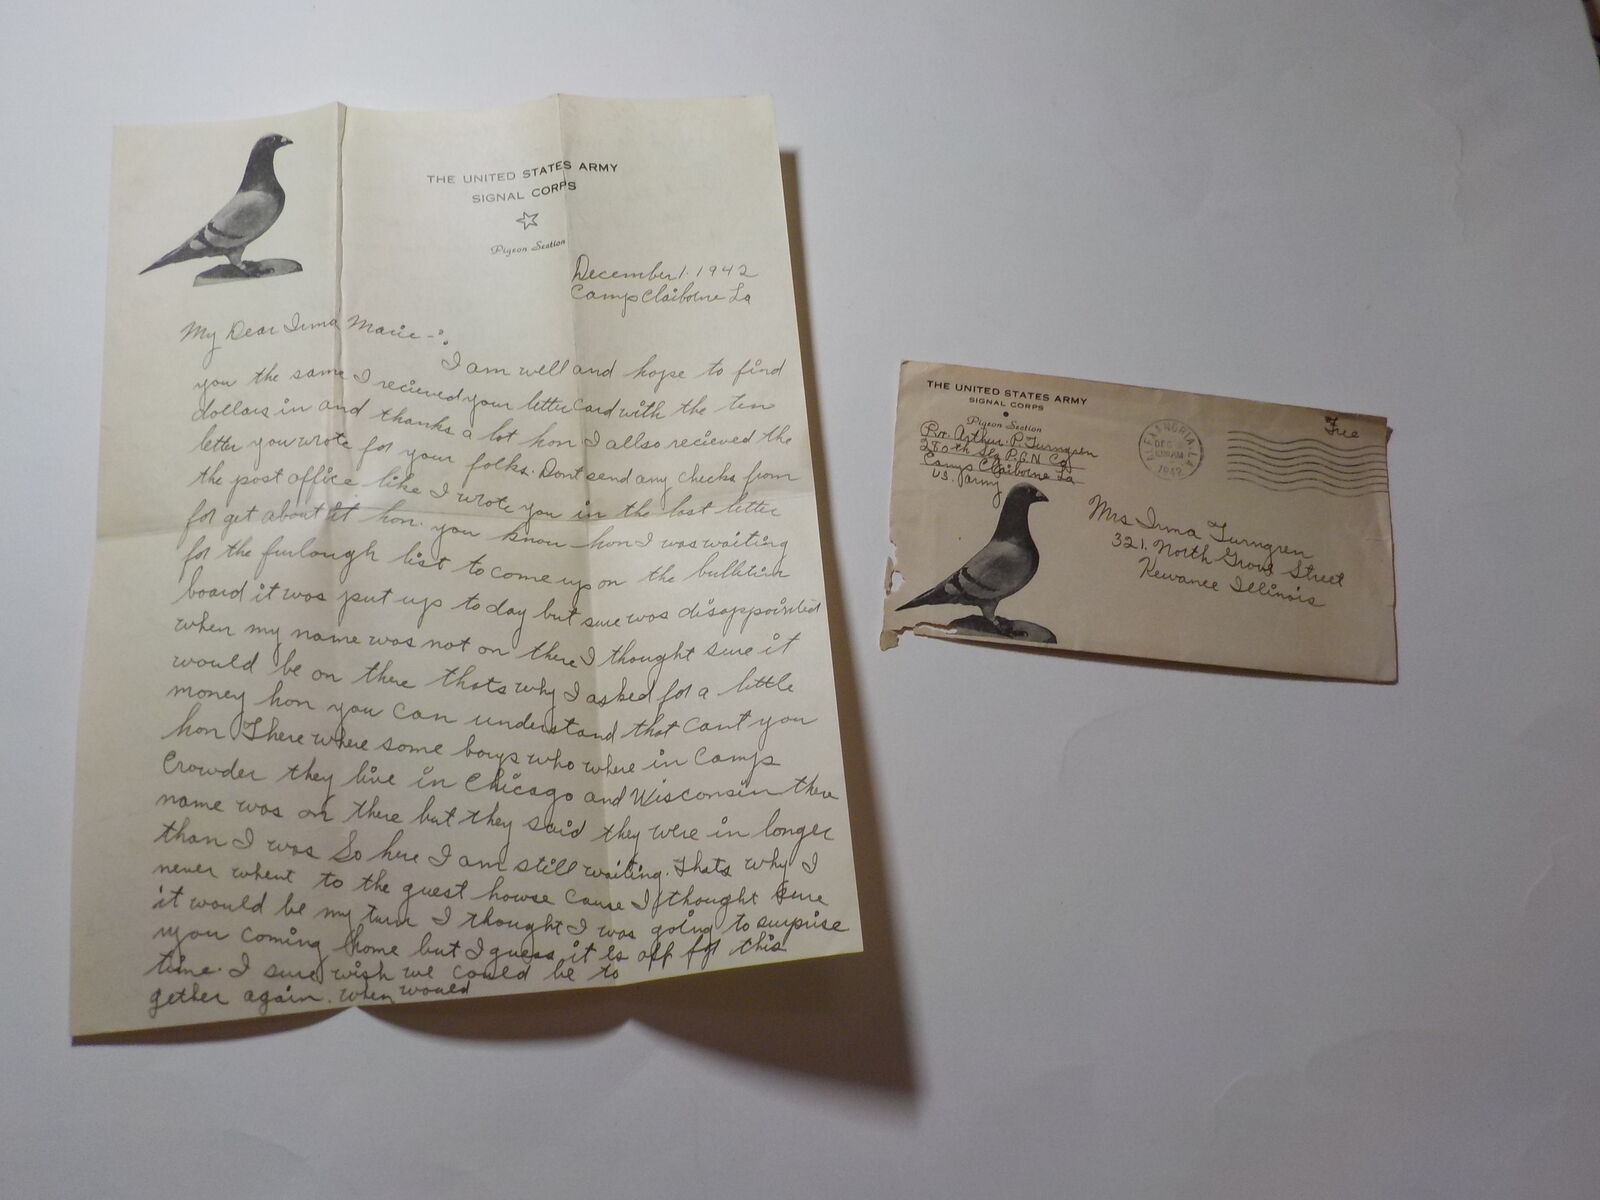 THE UNITED STATES ARMY
SIGNAL CORPS
Pigeon Section
December 1. 1942
Camp Claiborne La
My Dear Irma Marie -:
I am well and hope to find
you the same I recieved your letter card with the ten
dollars in and thanks a lot hon I allso recieved the
letter you wrote for your folks. Dont send any checks from
the post office like I wrote you in the last letter
for get about it hon. you know hon I was waiting
for the furlough list to come up on the bulletin
board it was put up to day but sure was disappointed
when my name was not on there I thought sure it
would be on there thats why I asked for a little
money hon you can understand that cant you
hon. There where some boys who where in Camp
Crowder they live in Chicago and Wisconsin there
name was on there but they said they were in longer
than I was So here I am still waiting. Thats why I
never whent to the guest howse cause I thought sure
it would be my turn I thought I was going to surprise
you coming home but I guess it is off for this
time. I sure wish we could be to
gether again. when would
THE UNITED STATES ARMY
SIGNAL CORPS
Pigeon Section
Pvt. Arthur. P. Turngren
280th Sig P.G.N Co
Camp Claiborne La
US. Army
ALEXANDRIA, LA
DEC
1942
Free
Mrs Irma Turngren
321. North Grove Street
Kewanee Illinois